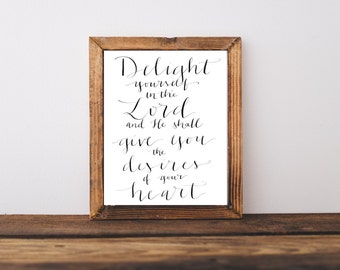 Delight
yourself
in the
Lord
and He shall
give you
the
desires
of your
heart